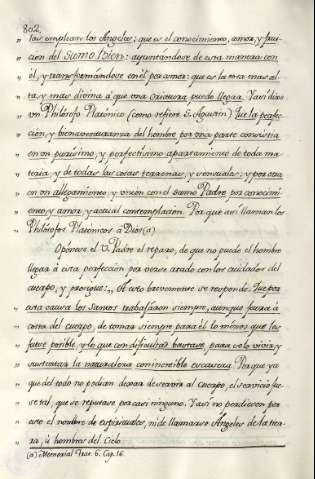 802.
„ las emplean los Angeles; que es el conocimiento, amor, y frui-
„ cion del Sumo Bien: ayuntandose de esta manera con
„ èl, y transformandose en èl por amor: que es la otra mas al-
„ ta, y mas divina à que una criatura puede llegar. Y assi dixo
„ un Philosofo Platonico (como refiere S. Agustin) que la perfec-
„ cion, y bienaventuranza del hombre por una parte consistia
„ en un purissimo, y perfectissimo apartamiento de toda ma-
„ teria, y de todas las cosas terrenas, y sensuales; y por otra
„ en un allegamiento, y union con el Sumo Padre por conocimi-
„ ento, y amor, y actual contemplacion. Por que assi llaman los
„ Philosofos Platonicos à Dios (a)
Oponese el V. Padre el reparo, de que no puede el hombre
llegar à esta perfeccion por verse atado con los cuidados del
cuerpo, y prosigue: „ A esto brevemente se responde. Que por
„ esta causa los Santos trabajaron siempre, aunque fuesse à
„ costa del cuerpo, de tomar siempre para èl lo menos que les
„ fuesse posible, y lo que con dificultad bastasse, para solo vivir, y
„ sustentar la naturaleza con increible escaseza. Porque ya
„ que del todo no podian dexar de servir al cuerpo, el servicio fue-
„ se tal, que se reputasse por casi ninguno. Y assi no perdiessen por
„ esto el nombre de espirituales, ni de llamarse Angeles de la tier-
„ ra, ù hombres del Cielo.
(a) Memorial Trat. 6. Cap. 16.